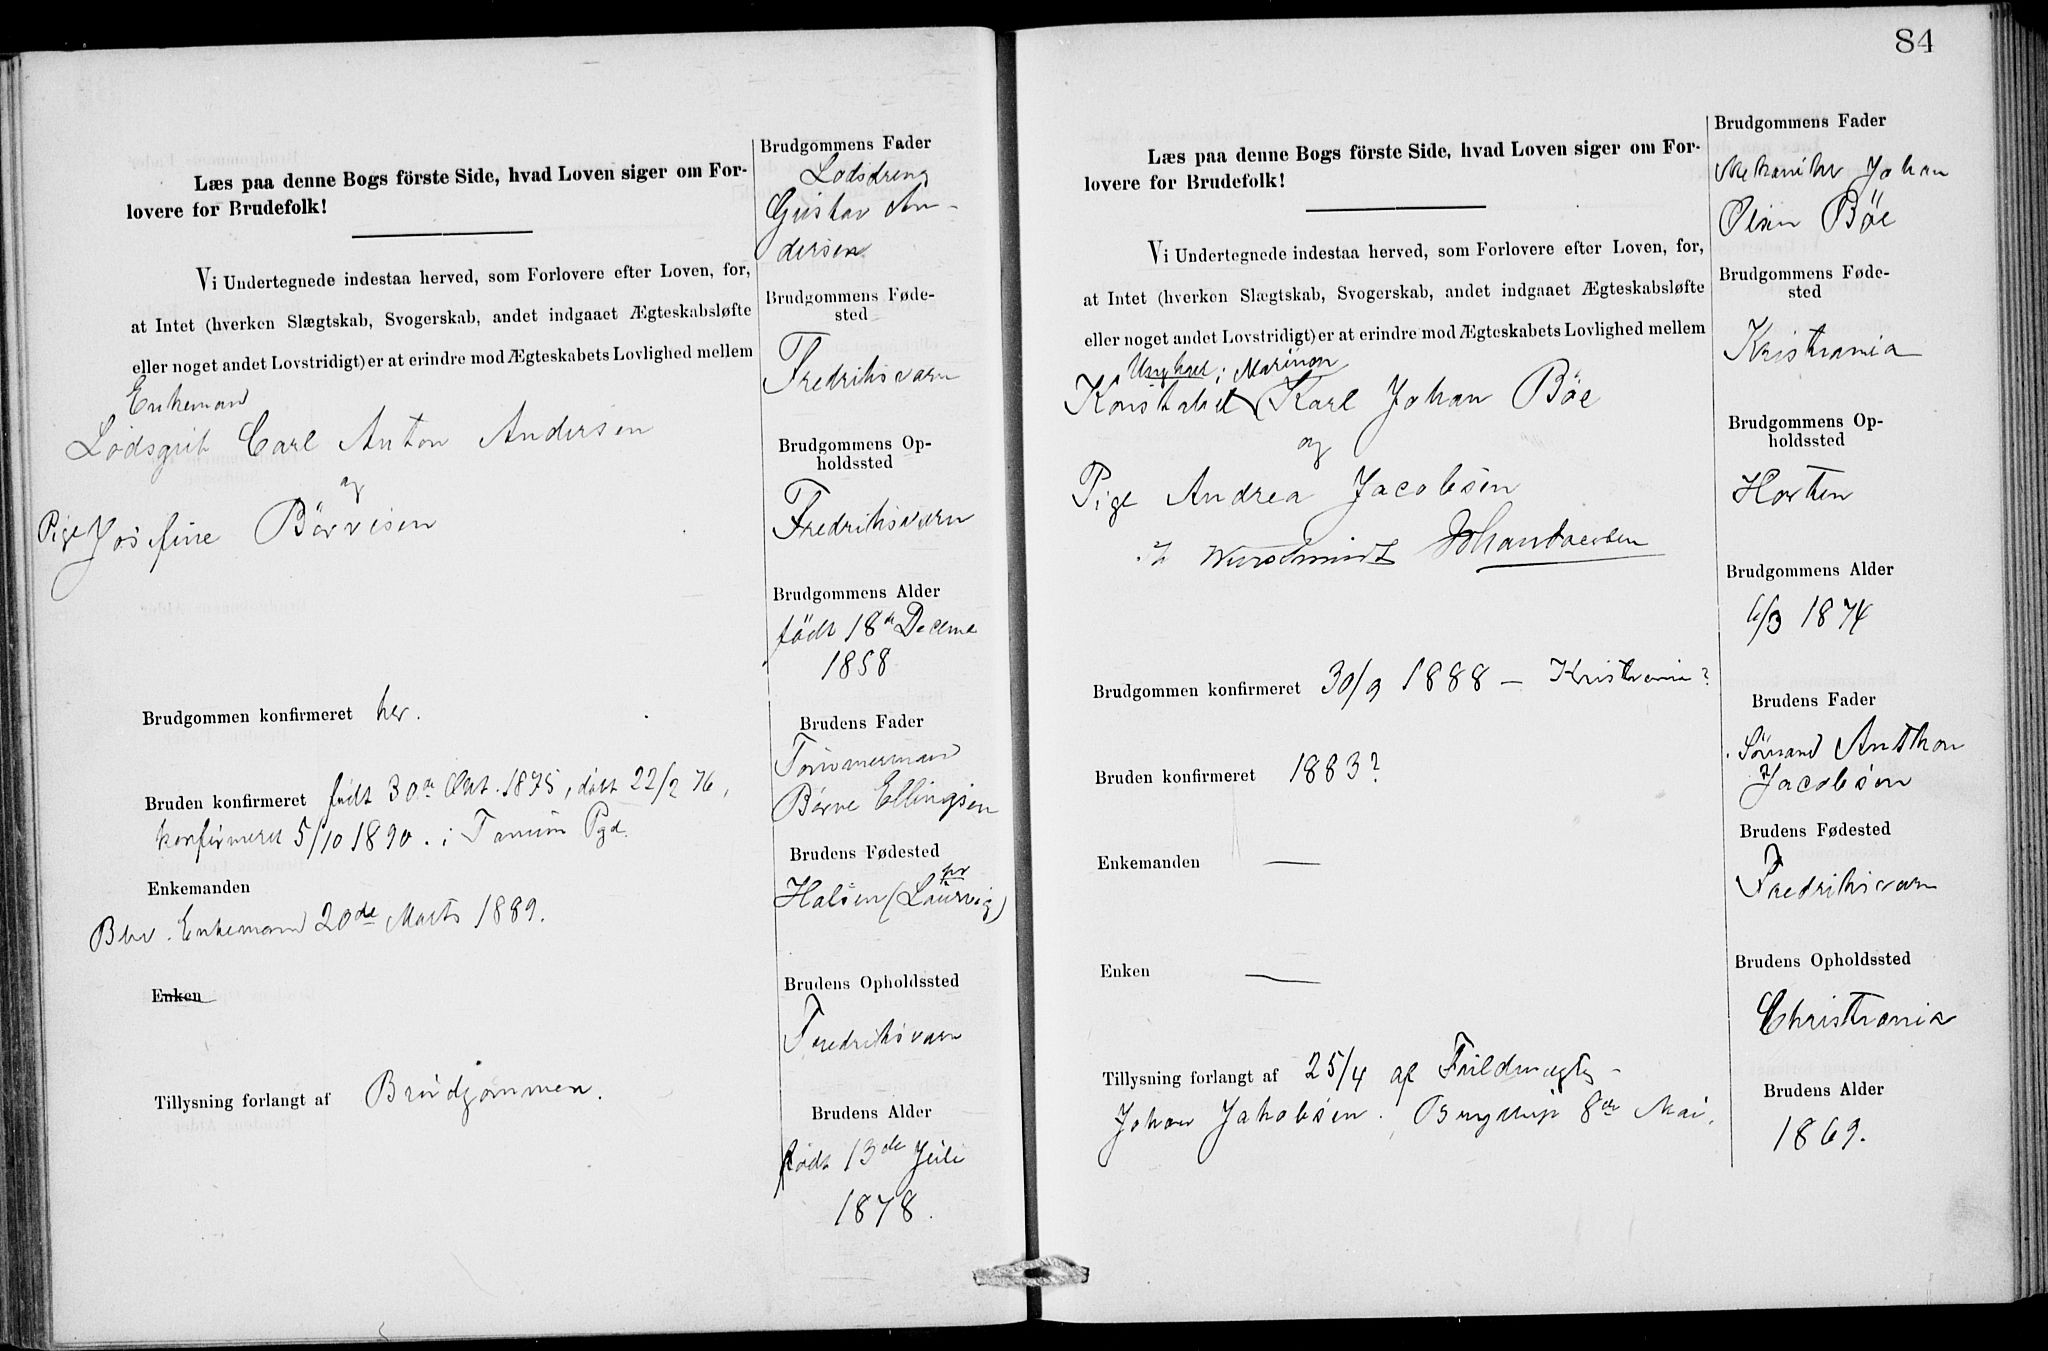 Læs paa denne Bogs förste Side, hvad Loven siger om For-
lovere for Brudefolk!
Vi Undertegnede indestaa herved, som Forlovere efter Loven, for,
at Intet (hverken Slægtskab, Svogerskab, andet indgaaet Ægteskabsløfte
eller noget andet Lovstridigt) er at erindre mod Ægteskabets Lovlighed mellem
Enkemand
Lodsgut Carl Anton Andersen
og
Pige Josefine Börresen
Brudgommen konfirmeret her.
Bruden konfirmeret født 30te Okt. 1875, døbt 22/2 76,
konfirmeret 5/10 1890. i Tanum Pgd.
Enkemanden
Blev Enkemand 20de Marts 1889.
Enken
Tillysning forlangt af Brudgommen.
Brudgommens Fader
Lodsdreng
Gustav An-
dersen
Brudgommens Føde-
sted
Fredriksværn
Brudgommens Op-
holdssted
Fredriksværn
Brudgommens Alder
født 18de Decemb
1858
Brudens Fader
Tömmermand
Börre Ellingsen
Brudens Fødested
Halsen (pr Laurvig)
Brudens Opholdssted
Fredriksværn
Brudens Alder
født 13de Juli
1878.
84
Læs paa denne Bogs förste Side, hvad Loven siger om For-
lovere for Brudefolk!
Vi Undertegnede indestaa herved, som Forlovere efter Loven, for,
at Intet (hverken Slægtskab, Svogerskab, andet indgaaet Ægteskabsløfte
eller noget andet Lovstridigt) er at erindre mod Ægteskabets Lovlighed mellem
Ungkarl i Marinen
Konstabel Karl Johan Böe
og
Pige Andrea Jacobsen
Wurschmidt Johan Jacobsen
Brudgommen konfirmeret 30/9 1888 — Kristiania?
Bruden konfirmeret 1883?
Enkemanden —
Enken —
Tillysning forlangt af 25/4 af Fuldmægtig
Johan Jakobsen. Bryllup 8de Mai.
Brudgommens Fader
Mekaniker Johan
Olsen Böe
Brudgommens Føde-
sted
Kristiania
Brudgommens Op-
holdssted
Horten
Brudgommens Alder
6/3 1874
Brudens Fader
Sömand Anthon
Jacobsen
Brudens Fødested
Fredriksværn
Brudens Opholdssted
Christiania
Brudens Alder
1869.